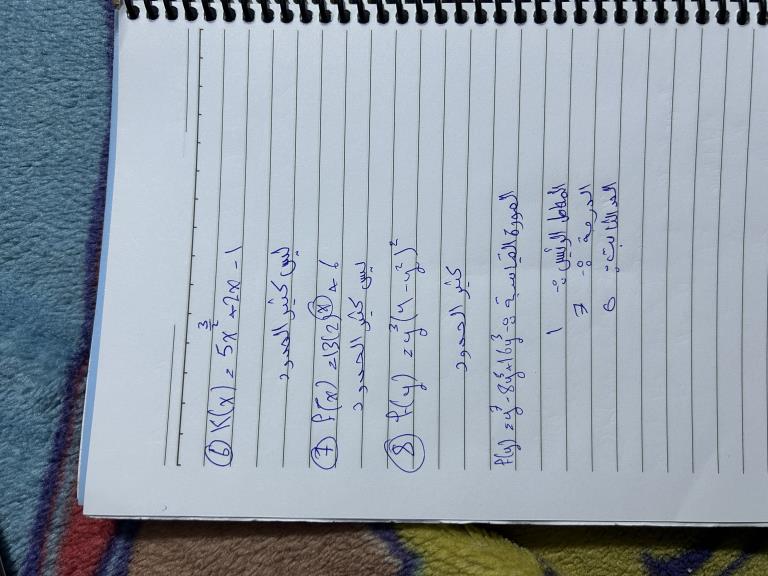 ⑥ K(x) = 5x^(3/2) + 2x - 1
ليس كثير الحدود
⑦ f(x) = 13(2)^x + 6
ليس كثير الحدود
⑧ f(y) = y³(4 - y²)²
كثير الحدود
f(y) = y⁷ - 8y⁵ + 16y³ الصورة القياسية :-
المعامل الرئيس :- 1
الدرجة :- 7
الحد الثابت :- 0